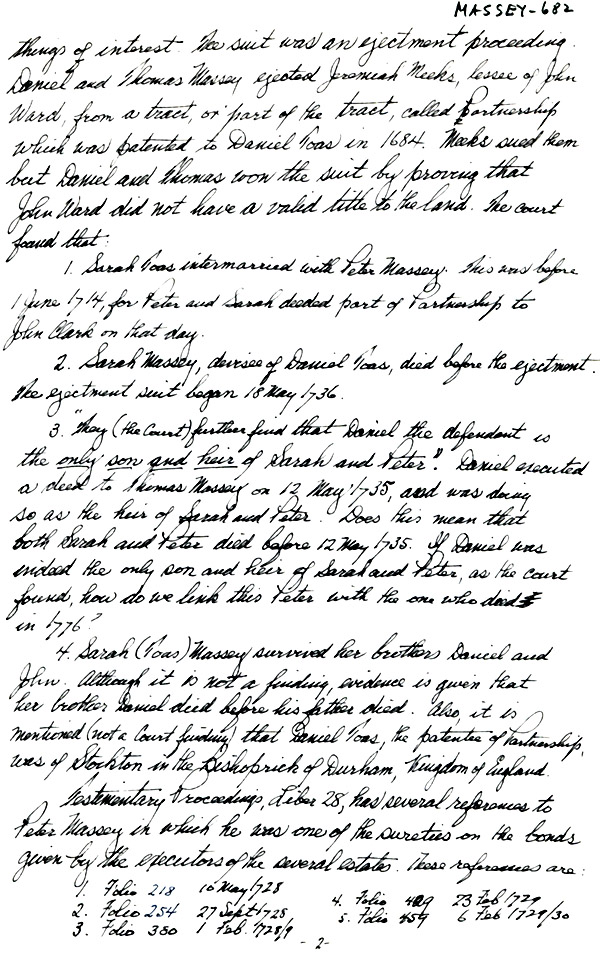 MASSEY-682
things of interest. The suit was an ejectment proceeding.
Daniel and Thomas Massey ejected Jeremiah Meeks, lessee of John
Ward, from a tract, or part of the tract, called Partnership
which was patented to Daniel Toas in 1684. Meeks sued them
but Daniel and Thomas won the suit by proving that
John Ward did not have a valid title to the land. The court
found that:
1. Sarah Toas intermarried with Peter Massey. This was before
1 June 1714, for Peter and Sarah deeded part of Partnership to
John Clark on that day.
2. Sarah Massey, devisee of Daniel Toas, died before the ejectment.
The ejectment suit began 18 May 1736.
3. "They (the Court) further find that Daniel the defendent is
the only son and heir of Sarah and Peter". Daniel executed
a deed to Thomas Massey on 12 May 1735, and was doing
so as the heir of Sarah and Peter. Does this mean that
both Sarah and Peter died before 12 May 1735. If Daniel was
indeed the only son and heir of Sarah and Peter, as the court
found, how do we link this Peter with the one who died
in 1776?
4. Sarah (Toas) Massey survived her brothers Daniel and
John. Although it is not a finding, evidence is given that
her brother Daniel died before his father died. Also, it is
mentioned (not a Court finding) that Daniel Toas, the patentee of Partnership,
was of Stockton in the Bishoprick of Durham, Kingdom of England.
Testimentary Proceedings, Liber 28, has several references to
Peter Massey in which he was one of the sureties on the bonds
given by the executors of the several estates. These references are:
1. Folio 218 10 May 1728
2. Folio 254 27 Sept 1728
3. Folio 380 1 Feb. 1728/9
4. Folio 23 Feb 1729
5. Folio 459 6 Feb 1729/30
-2-